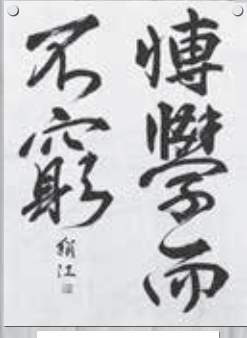 博學而
不窮
稍江